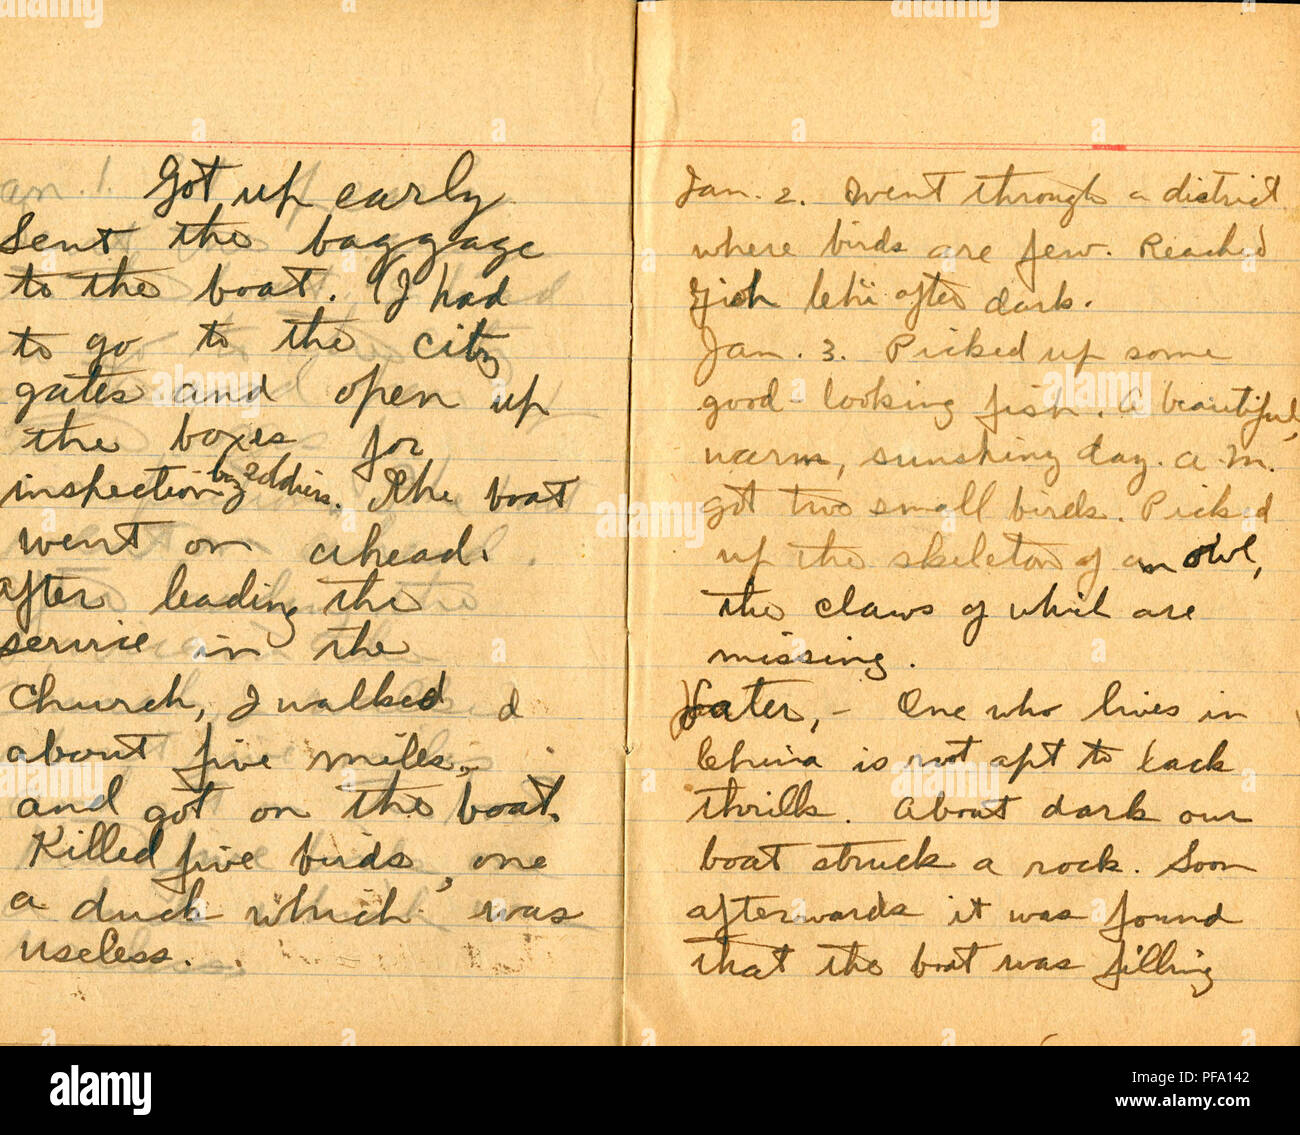 an. 1. Got up early
Sent the baggage
to the boat. I had
to go to the city
gates and open up
the boxes for
inspection by soldiers. The boat
went on ahead.
After leading the
service in the
church, I walked
about five miles,
and got on the boat.
Killed five birds, one
a duck which was
useless.
Jan. 2. Went through a district
where birds are few. Reached
after dark.
Jan. 3. Picked up some
good-looking fish. A beautiful,
warm, sunshiny day. A.M.
got two small birds. Picked
up the skeleton of an owl,
the claws of which are
missing.
Later, - One who lives in
China is not apt to lack
thrills. About dark our
boat struck a rock. Soon
afterwards it was found
that the boat was filling
alamy
Image ID: PFA142
www.alamy.com